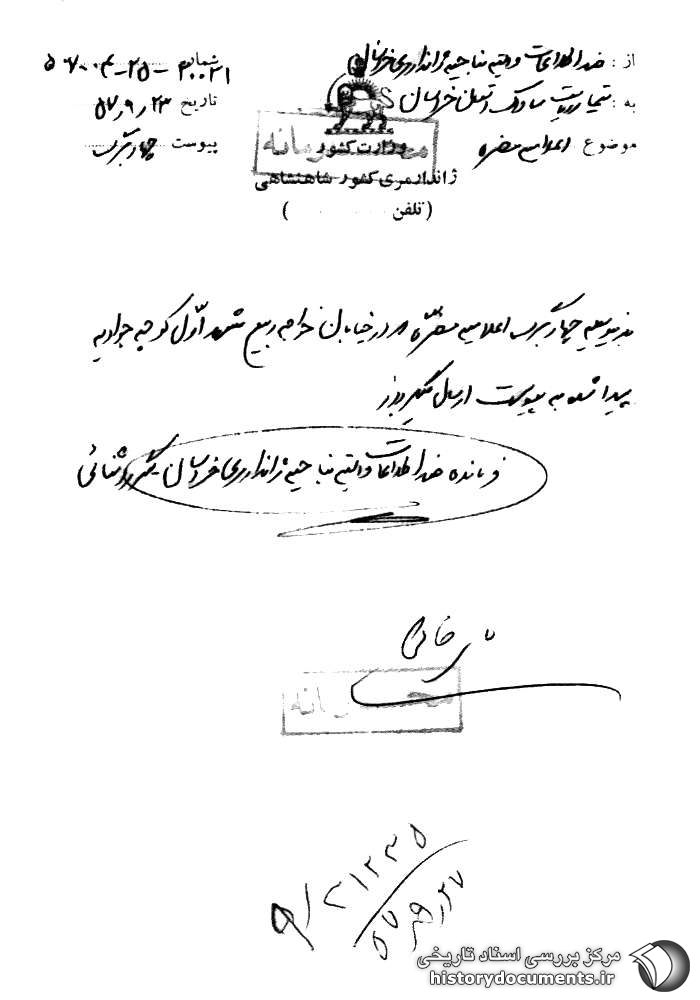 از : ضد اطلاعات ناحیه ژاندارمری خراسان
به : تیمسار ریاست ساواک استان خراسان
موضوع اعلامیه مضره
شماره ۲۰۰۲۱ - ۲۵ -
تاریخ ۲۳ ر ۹ ر ۵۷
پیوست چهار برگ
محرمانه
وزارت کشور
ژاندارمری کشور شاهنشاهی
( تلفن )
بدینوسیله چهار برگ اعلامیه مضره که در خیابان خواجه ربیع مشهد اول کوچه جوادیه
پیدا شده به پیوست ارسال میگردد
فرمانده ضد اطلاعات ناحیه ژاندارمری خراسان
محرمانه
۵۷ ر ۹ ر ۲۷
مرکز بررسی اسناد تاریخی
historydocuments.ir